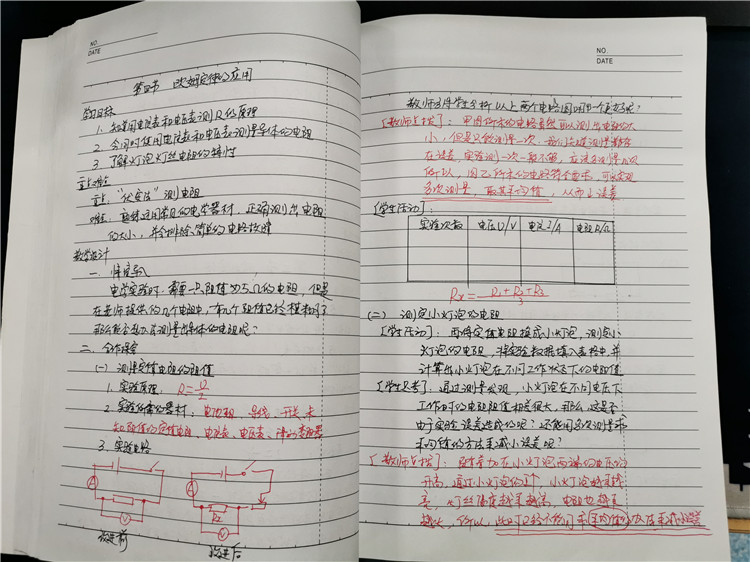 NO.
DATE
第四节 欧姆定律的应用
学习目标
1. 知道用电流表和电压表测R的原理
2. 会同时使用电流表和电压表测量导体的电阻
3. 了解灯泡灯丝电阻的特性
重点难点
重点:“伏安法”测电阻
难点:熟练运用常见的电学器材,正确测出电阻
的大小,并会排除简单的电路故障
教学设计
一、情境导入
电学实验时,需要一只阻值为5Ω的电阻,但是
在老师提供的几个电阻中,有几个阻值已经模糊了
那么能否想办法测量出具体的电阻呢?
二、合作探究
(一) 测量定值电阻的阻值
1. 实验原理:
2. 实验所需的器材:电池组、导线、开关、未
知阻值的定值电阻、电流表、电压表、滑动变阻器
3. 实验电路
A
V
A
Rx
V
改进前
改进后
NO.
DATE
教师引导学生分析以上两个电路图用哪一个更好?
[教师点拨]:甲图所示的电路虽然可以测出电阻的大
小,但是只能测量一次,
在误差,实验测一次一般不够,应该多测量几次
所以,图乙所示的电路符合要求,可以实现
多次测量,取其平均值,从而减小误差
[学生活动]:
实验次数 电压U/V 电流I/A 电阻R/Ω
Rx = R1+R2+R3
3
(二) 测定小灯泡的电阻
[学生活动]:再将定值电阻换成小灯泡,测定小
灯泡的电阻,将实验数据填入表格中,并
计算出小灯泡在不同工作状态下的电阻值
[学生思考]:通过测量发现,小灯泡在不同电压下
工作时的电阻阻值相差很大,那么,这是否
由于实验误差造成的呢?还能用多次测量求
平均值的方法来减小误差呢?
[教师点拨]:随着加在小灯泡两端的电压的
升高,通过小灯泡的,小灯泡越来越
亮,灯丝温度越来越高,电阻也越来
越大,所以,此时已经不能用求平均值的方法来减小误差